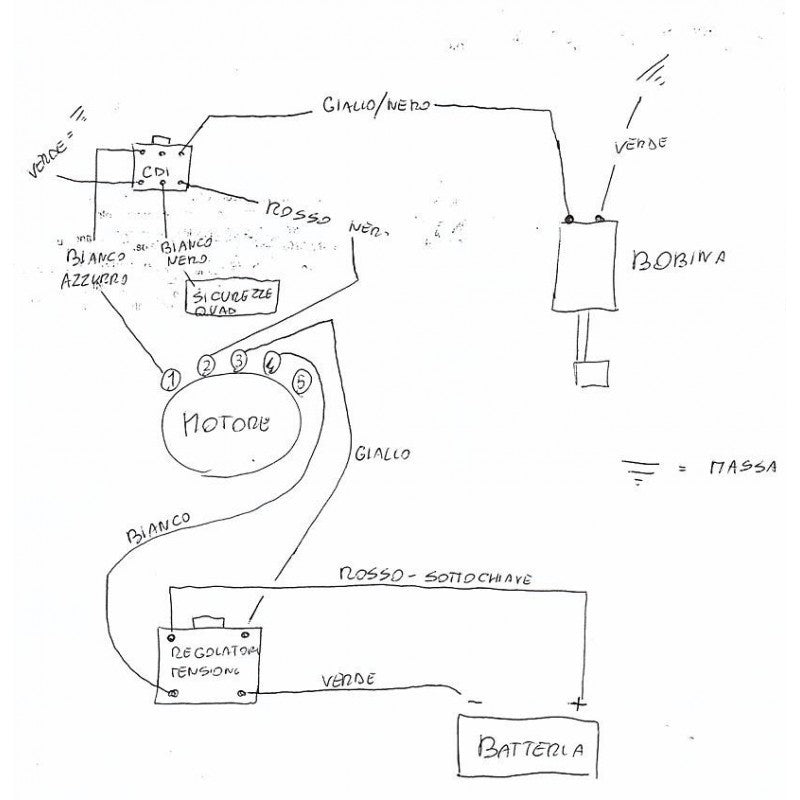 GIALLO/NERO
VERDE =
VERDE
CDI
ROSSO NER.
BIANCO
AZZURRO
BIANCO
NERO
SICUREZZE
QUAD
BOBINA
1
2
3
4
5
MOTORE
GIALLO
= MASSA
BIANCO
ROSSO - SOTTOCHIAVE
REGOLATORE
TENSIONE
VERDE
- +
BATTERIA